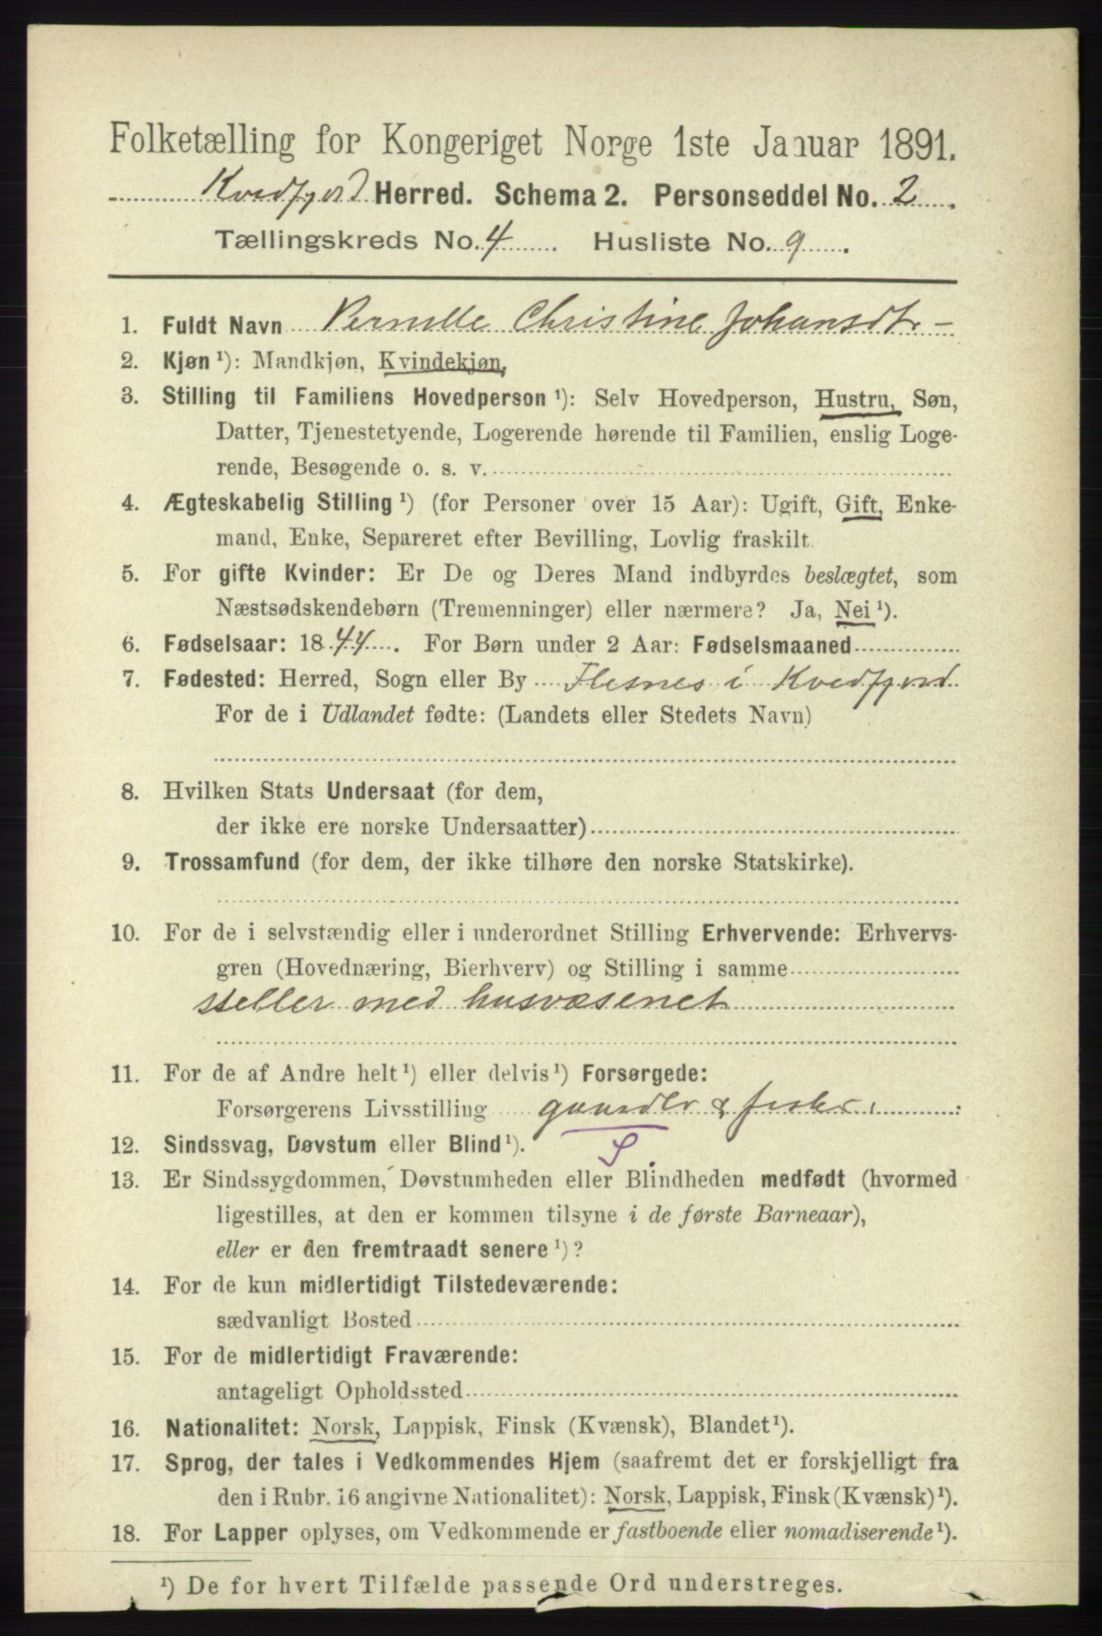 Folketælling for Kongeriget Norge 1ste Januar 1891.
Kvedfjord Herred. Schema 2. Personseddel No. 2.
Tællingskreds No. 4. Husliste No. 9.
1. Fuldt Navn Pernille Christine Johansdtr –
2. Kjøn ¹): Mandkjøn, Kvindekjøn,
3. Stilling til Familiens Hovedperson ¹): Selv Hovedperson, Hustru, Søn,
Datter, Tjenestetyende, Logerende hørende til Familien, enslig Loge-
rende, Besøgende o. s. v.
4. Ægteskabelig Stilling ¹) (for Personer over 15 Aar): Ugift, Gift, Enke-
mand, Enke, Separeret efter Bevilling, Lovlig fraskilt
5. For gifte Kvinder: Er De og Deres Mand indbyrdes beslægtet, som
Næstsødskendebørn (Tremenninger) eller nærmere? Ja, Nei ¹).
6. Fødselsaar: 1844. For Børn under 2 Aar: Fødselsmaaned
7. Fødested: Herred, Sogn eller By Flesnes i Kvedfjord
For de i Udlandet fødte: (Landets eller Stedets Navn)
8. Hvilken Stats Undersaat (for dem,
der ikke ere norske Undersaatter)
9. Trossamfund (for dem, der ikke tilhøre den norske Statskirke).
10. For de i selvstændig eller i underordnet Stilling Erhvervende: Erhvervs-
gren (Hovednæring, Bierhverv) og Stilling i samme
steller med husvæsenet
11. For de af Andre helt ¹) eller delvis ¹) Forsørgede:
Forsørgerens Livsstilling gaardbr & fisker
12. Sindssvag, Døvstum eller Blind ¹). S.
13. Er Sindssygdommen, Døvstumheden eller Blindheden medfødt (hvormed
ligestilles, at den er kommen tilsyne i de første Barneaar),
eller er den fremtraadt senere ¹)?
14. For de kun midlertidigt Tilstedeværende:
sædvanligt Bosted
15. For de midlertidigt Fraværende:
antageligt Opholdssted
16. Nationalitet: Norsk, Lappisk, Finsk (Kvænsk), Blandet ¹).
17. Sprog, der tales i Vedkommendes Hjem (saafremt det er forskjelligt fra
den i Rubr. 16 angivne Nationalitet): Norsk, Lappisk, Finsk (Kvænsk) ¹).
18. For Lapper oplyses, om Vedkommende er fastboende eller nomadiserende ¹).
¹) De for hvert Tilfælde passende Ord understreges.